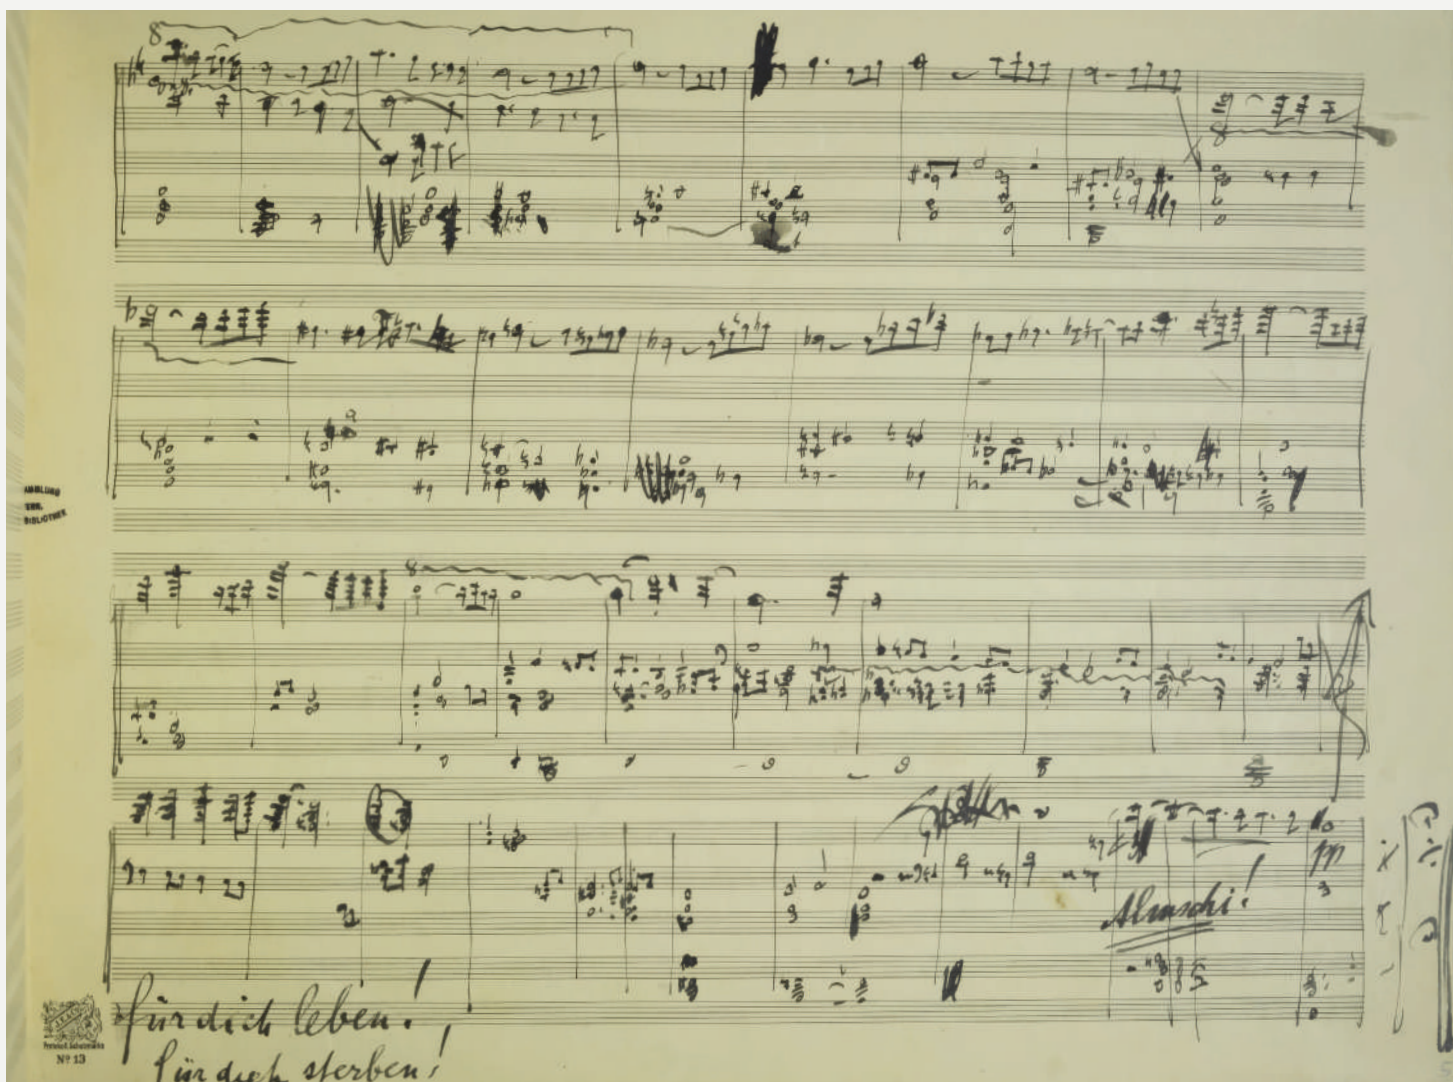 8
8
8
BIBLIOTHEK
Almschi!
für dich leben!
für dich sterben!
Nº 13